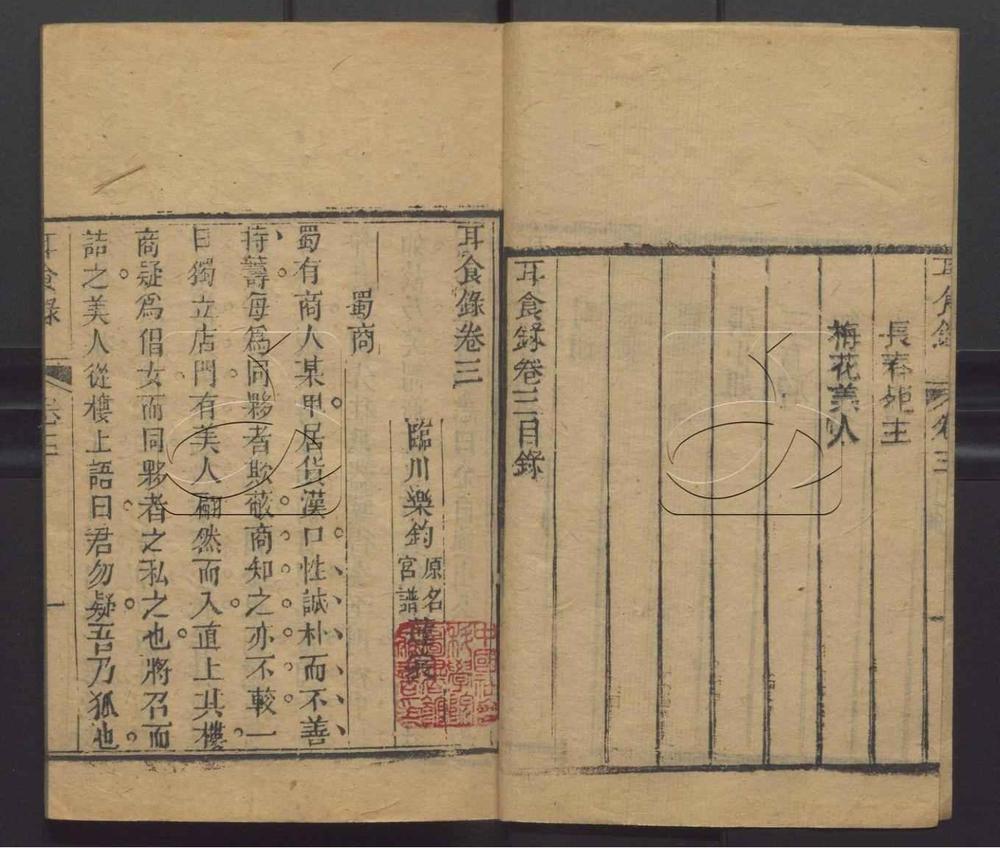 耳食錄 卷三
長春苑主
梅花美人
耳食錄卷三目錄
耳食錄卷三
臨川樂鈞 原名宮譜 蓮裳
蜀商
蜀有商人某甲居貨漢口性誠朴而不善
持籌每爲同夥者欺蔽商知之亦不較一
日獨立店門有美人翩然而入直上其樓
商疑爲倡女而同夥者之私之也將召而
詰之美人從樓上語曰君勿疑吾乃狐也
耳食錄 卷三 一